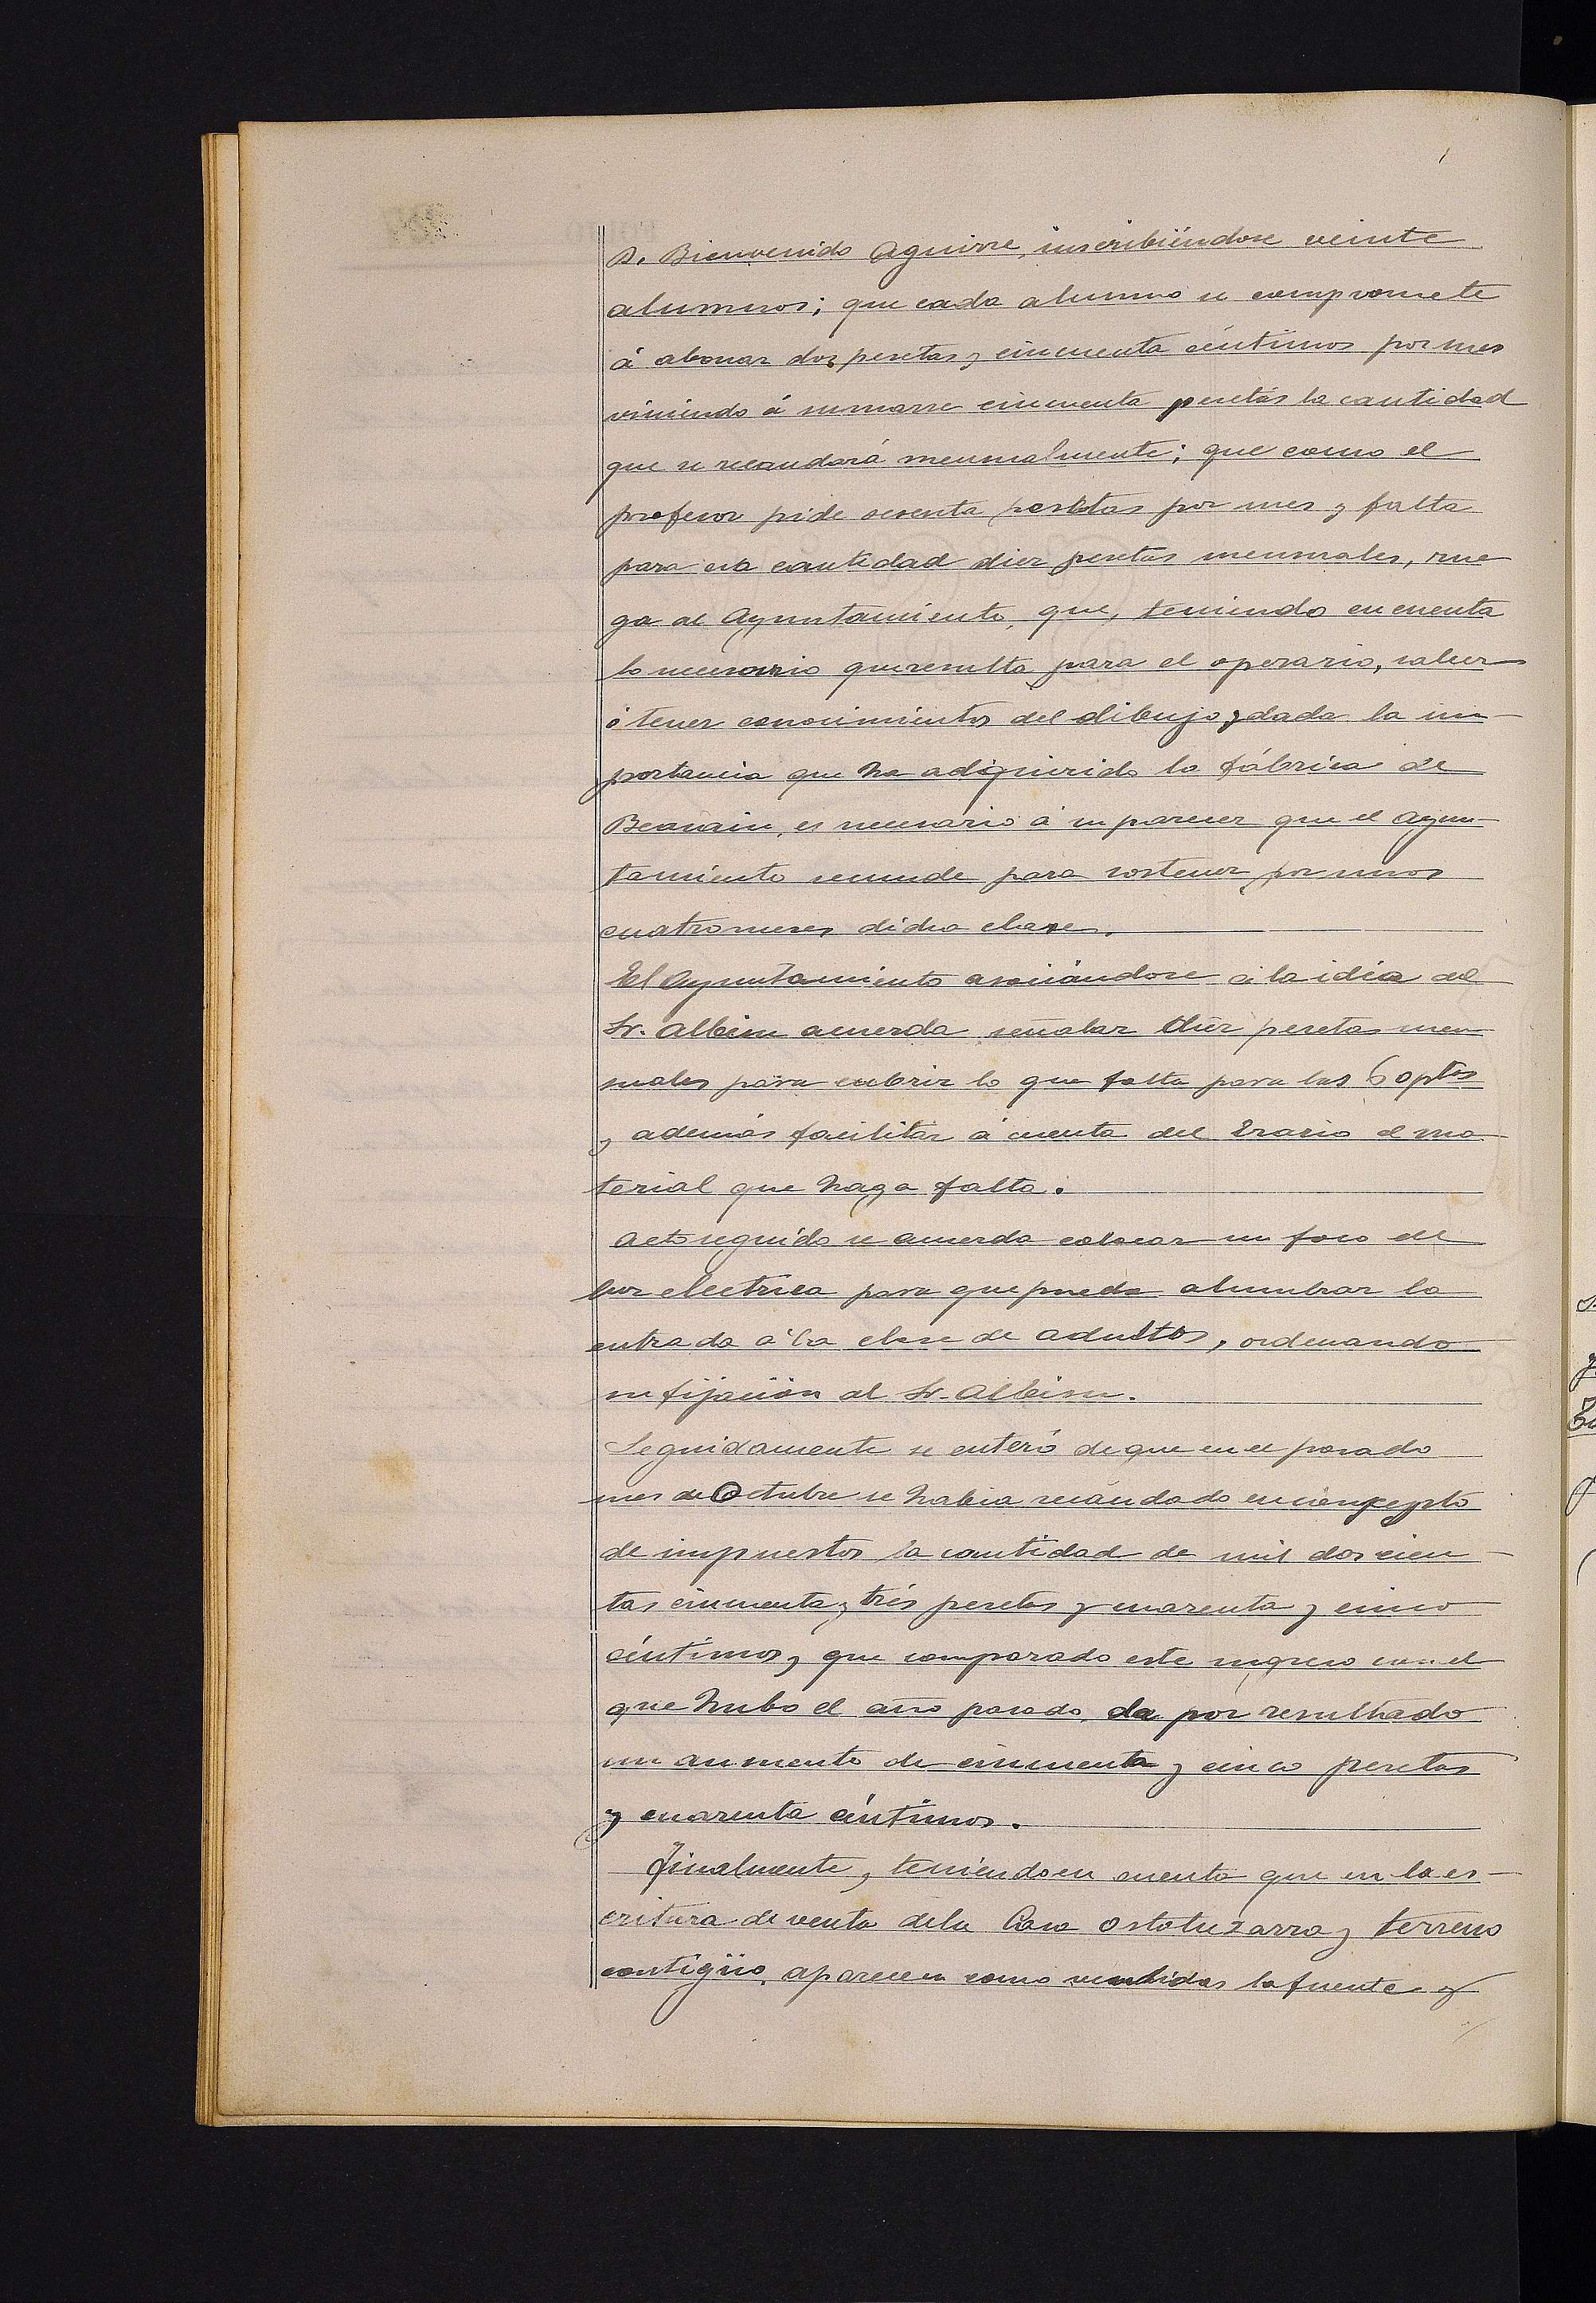 D. Bienvenido Aguirre, inscribiéndose veinte
alumnos; que cada alumno se compromete
á abonar dos pesetas y cincuenta céntimos por mes
viniendo á sumarse cincuenta pesetas la cantidad
que se recaudará mensualmente; que como el
profesor pide sesenta pesetas por mes y falta
para esta cantidad diez pesetas mensuales, rue
ga al Ayuntamiento, que, teniendo en cuenta
lo necesario que resulta para el operario, saber
ó tener conocimientos del dibujo y dada la im-
portancia que ha adquirido la fábrica de
Beasain, es necesario á su parecer que el Ayun-
tamiento secunde para sostener por unos
cuatro meses dicha clase.
El Ayuntamiento asociándose á la idea del
Sr. Albisu acuerda señalar diez pesetas men
suales para cubrir lo que falta para las 60 ptas
y además facilitar á cuenta del Erario el ma
terial que haga falta.
Acto seguido se acuerda colocar un foco de
luz electrica para que pueda alumbrar la
entrada á la clase de adultos, ordenando
su fijación al Sr. Albisu.
Seguidamente se enteró de que en el pasado
mes de Octubre se habia recaudado en concepto
de impuestos la cantidad de mil doscien-
tas cincuenta y trés pesetas y cuarenta y cinco
céntimos y que comparado este ingreso con el
que hubo el año pasado, da por resultado
un aumento de cincuenta y cinco pesetas
y cuarenta céntimos.
Finalmente, teniendo en cuenta que en la es-
critura de venta de la Casa Ostatuzarra y terreno
contigüo, aparecen como vendidas la fuente y